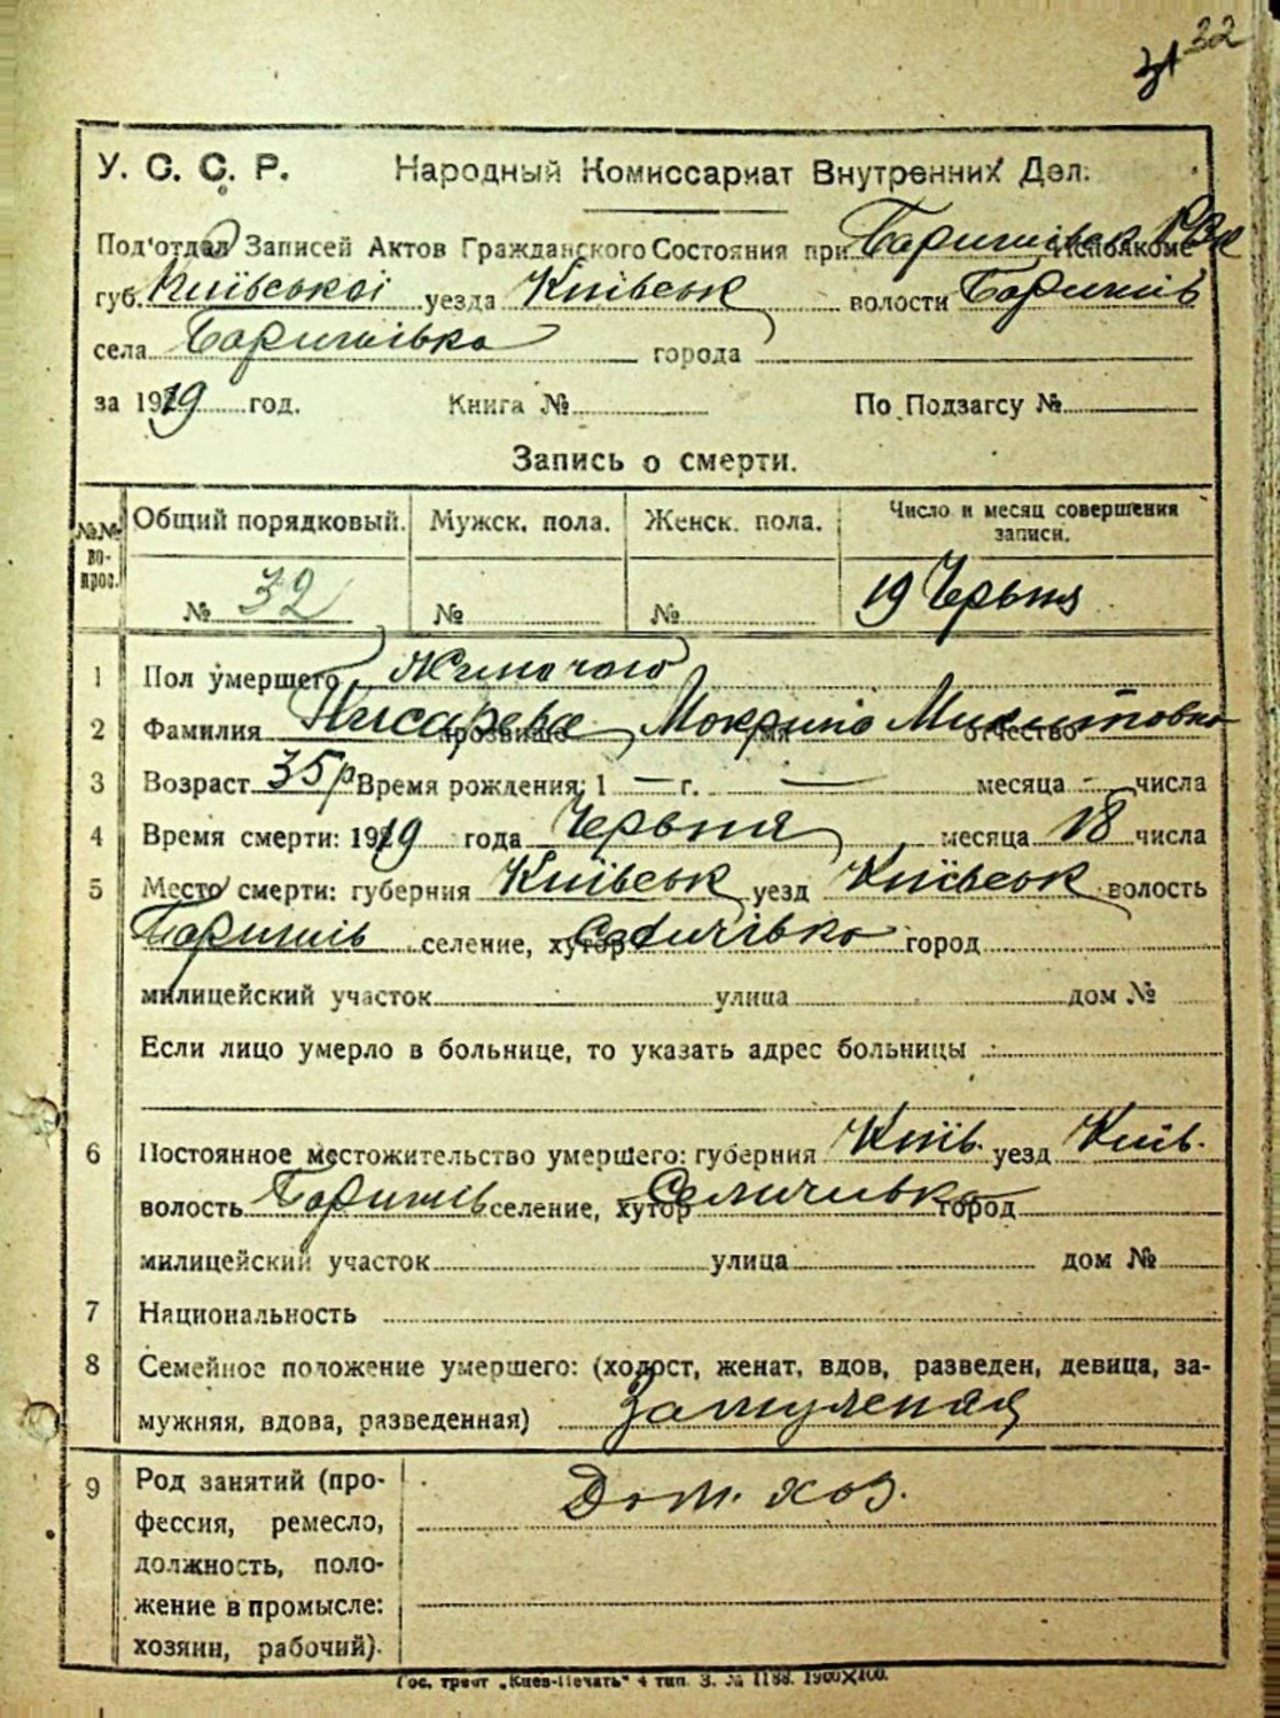 32
31
У. С. С. Р. Народный Комиссариат Внутренних Дел.
Под'отдел Записей Актов Гражданского Состояния при Баришівськ РВК Исполкоме
губ. Київської уезда Київськ волости Баришів
села Баришівка города
за 1919 год. Книга № По Подзагсу №
Запись о смерти.
№№ вопрос. Общий порядковый. Мужск. пола. Женск. пола. Число и месяц совершения записи.
№ 32 № № 19 Червня
1 Пол умершего Жиночого
2 Фамилия Писарева прозвище Мокрина имя Микитовна отчество
3 Возраст 35 р Время рождения: 1 — г. — месяца - числа
4 Время смерти: 1919 года Червня месяца 18 числа
5 Место смерти: губерния Київськ уезд Київськ волость
Баришів селение, хутор город
милицейский участок улица дом №
Если лицо умерло в больнице, то указать адрес больницы
6 Постоянное местожительство умершего: губерния Київ. уезд Київ.
волость Баришів селение, хутор Селичивка город
милицейский участок улица дом №
7 Национальность
8 Семейное положение умершего: (холост, женат, вдов, разведен, девица, за-
мужняя, вдова, разведенная) Замужняя
9 Род занятий (про- Дом. хоз.
фессия, ремесло,
должность, поло-
жение в промысле:
хозяин, рабочий).
Гос. трест „Киев-Печать“ 4 тип. З. № 1188. 1900×100.